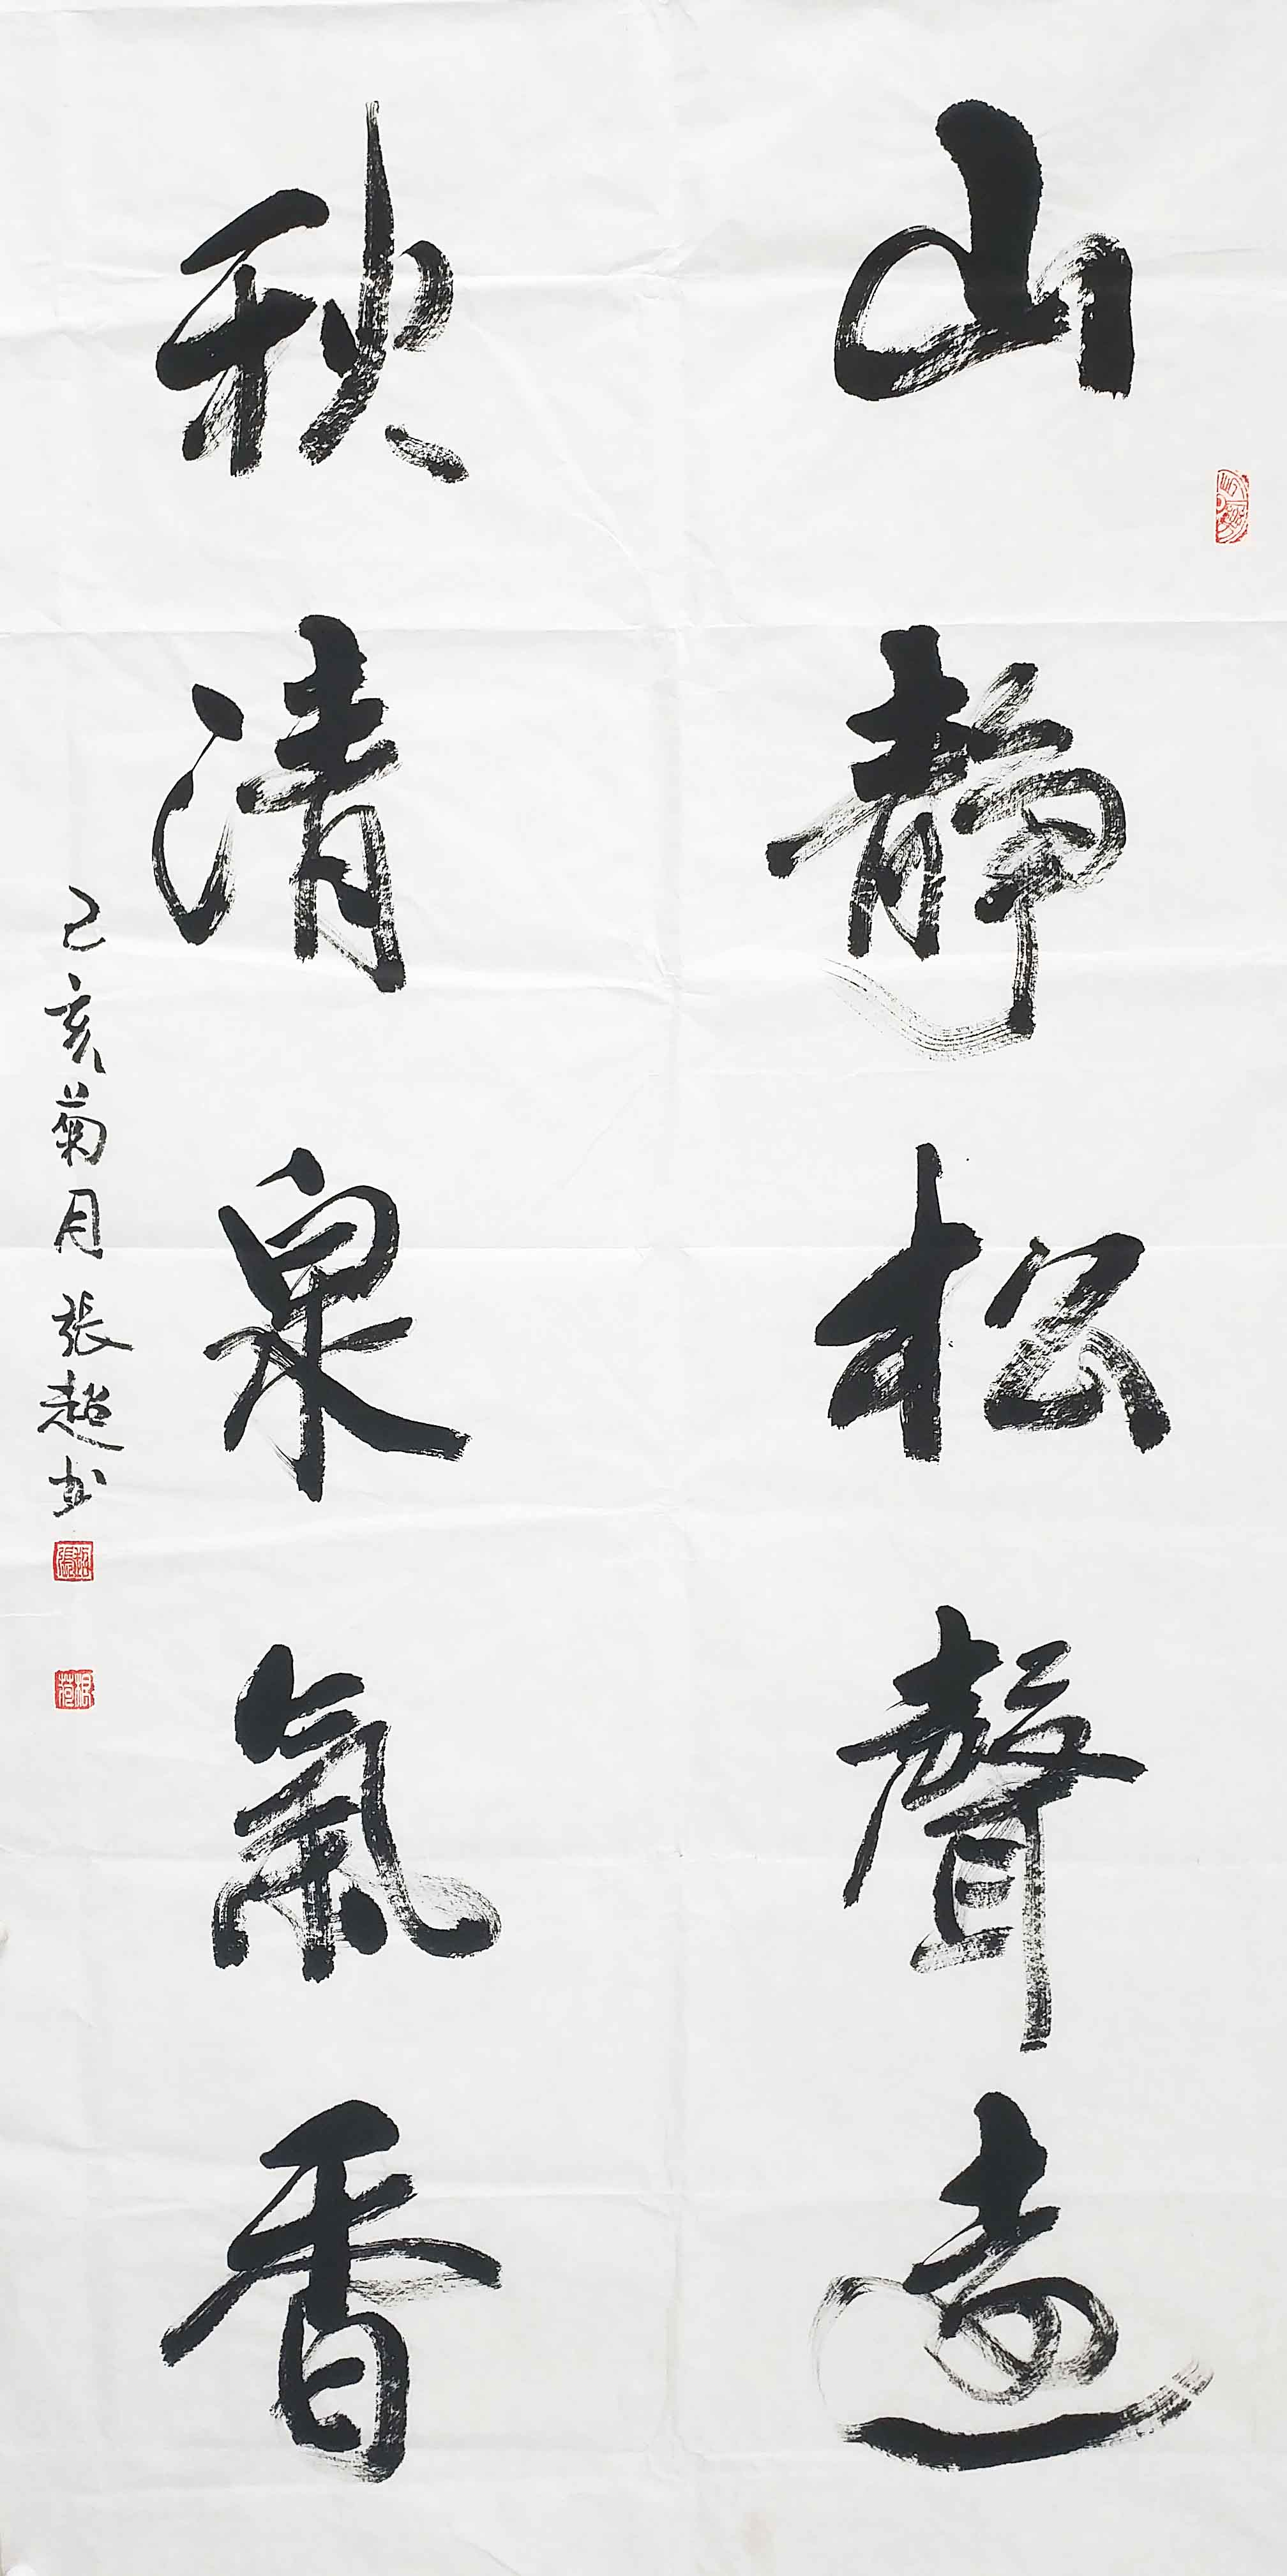 山靜松聲遠
秋清泉氣香
己亥菊月張超书
張超